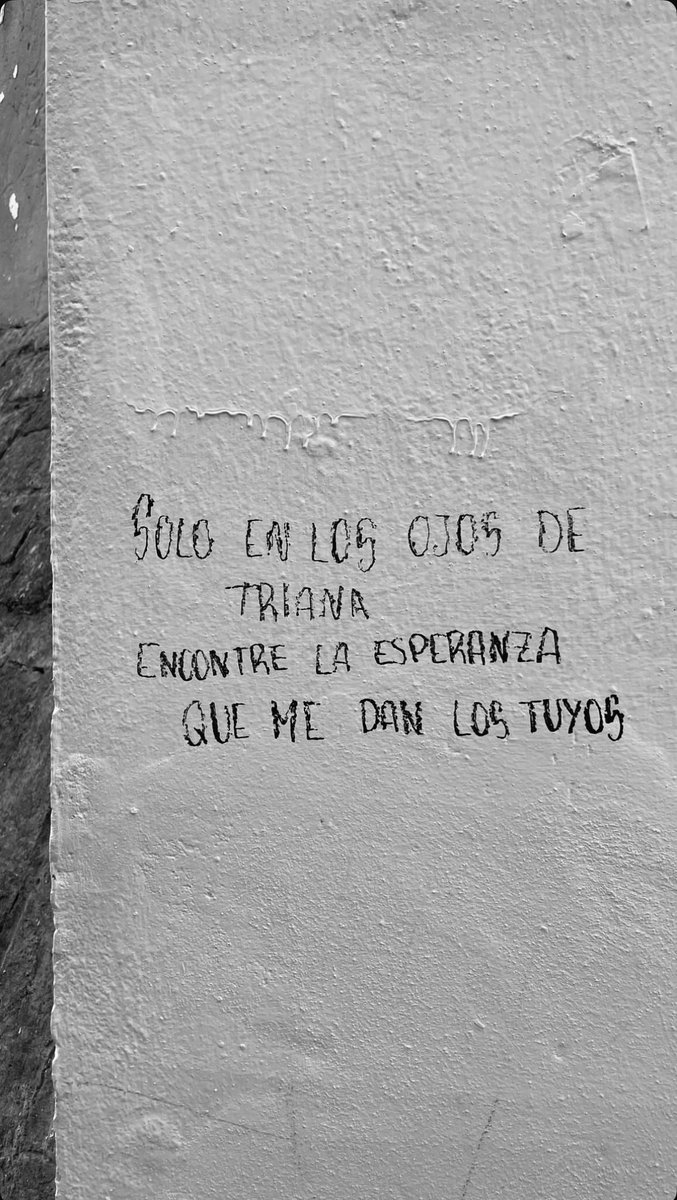 SOLO EN LOS OJOS DE
TRIANA
ENCONTRE LA ESPERANZA
QUE ME DAN LOS TUYOS